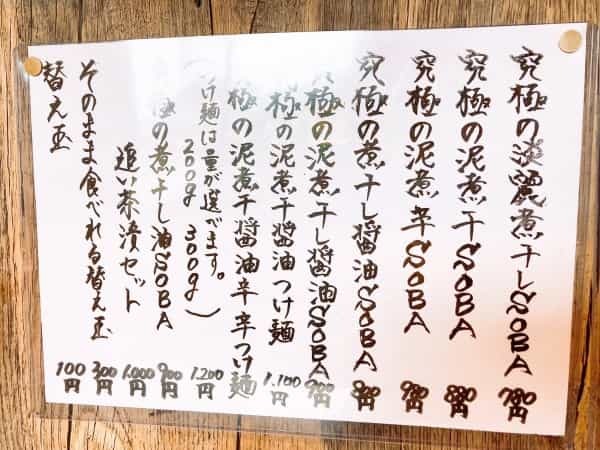 究極の淡麗煮干しSOBA 780円
究極の泥煮干SOBA 880円
究極の泥煮辛SOBA 980円
究極の煮干し醤油SOBA 800円
究極の泥煮干し醤油SOBA 900円
究極の泥煮干醤油つけ麺 1.100円
究極の泥煮干醤油辛辛つけ麺 1.200円
つけ麺は量が選べます。
200g 300g)
究極の煮干し油SOBA 900円
追い茶漬セット 1.000円
そのまま食べれる替え玉 300円
替え玉 100円